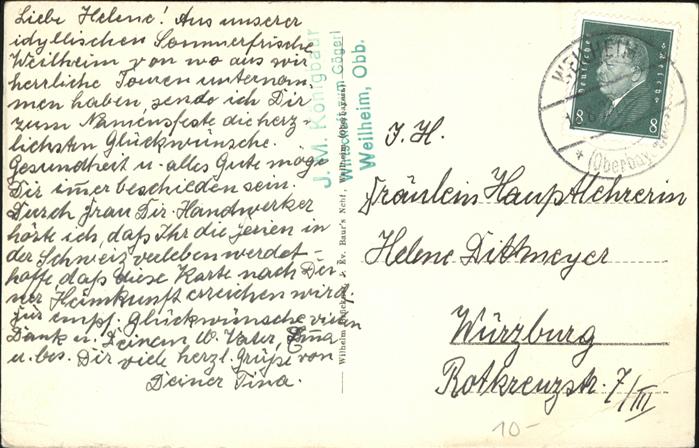 Liebe Helene! Aus unserer
idyllischen Sommerfrische
Weilheim von wo aus wir
herrliche Touren unternom-
men haben, sende ich Dir
zum Namensfeste die herz-
lichsten Glückwünsche.
Gesundheit u. alles Gute möge
Dir immer beschieden sein.
Durch Frau Dir. Handwerker
hörte ich, daß Ihr die Ferien in
der Schweiz verleben werdet -
hoffe daß diese Karte nach Dei-
ner Heimkunft erreichen wird.
Für empf. Glückwünsche vielen
Dank u. Deinem W. Vater, Emma
u. bes. Dir viele herzl. Grüße von
Deiner Tina.
J. M. Königbaur
Wirtschaft zum Gögerl
Weilheim, Obb.
Ev. Baur's Nchf., Weilheim (Oberbayern)
Deutsches Reich
8 8
WEILHEIM
* (Oberbay.
I. H.
Fräulein Hauptlehrerin
Helene Dittmeyer
Würzburg
Rotkreuzstr. 7/III
10-